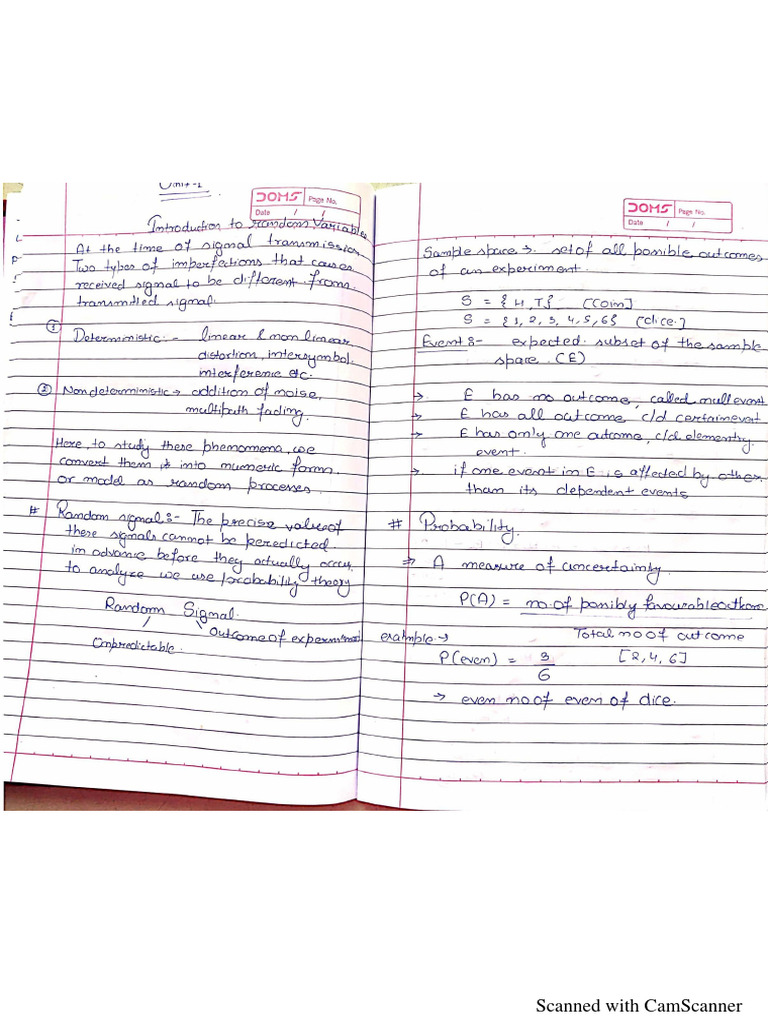 Unit-1
DOMS Page No.
Date / /
Introduction to Random Variables
At the time of signal transmission
Two types of imperfections that causes
received signal to be different from
transmitted signal.
① Deterministic :- linear & non linear
distortion, intersymbol
interference etc.
② Non deterministic → addition of noise,
multipath fading.
Here, to study these phenomena, we
convert them is into numeric form
or model as random processes.
# Random signals :- The precise value of
these signals cannot be peredicted
in advance before they actually occur,
to analyze we use probability theory
Random Signal.
Outcome of experiment
Unpredictable.
DOMS Page No.
Date / /
Sample space → set of all possible outcomes
of an experiment.
S = {H, T} [Coin]
S = {1, 2, 3, 4, 5, 6} [dice.]
Event :- expected subset of the sample
space. (E)
→ E has no outcome, called null event
→ E has all outcome c/d certain event
→ E has only one outcome, c/d elementry
event.
→ if one event in E is affected by other
than its dependent events
# Probability.
⇒ A measure of uncertainty.
P(A) = no. of possibly favourable outcome
Total no of outcome
example →
P(even) = 3 [2, 4, 6]
6
→ even no of even of dice.
Scanned with CamScanner